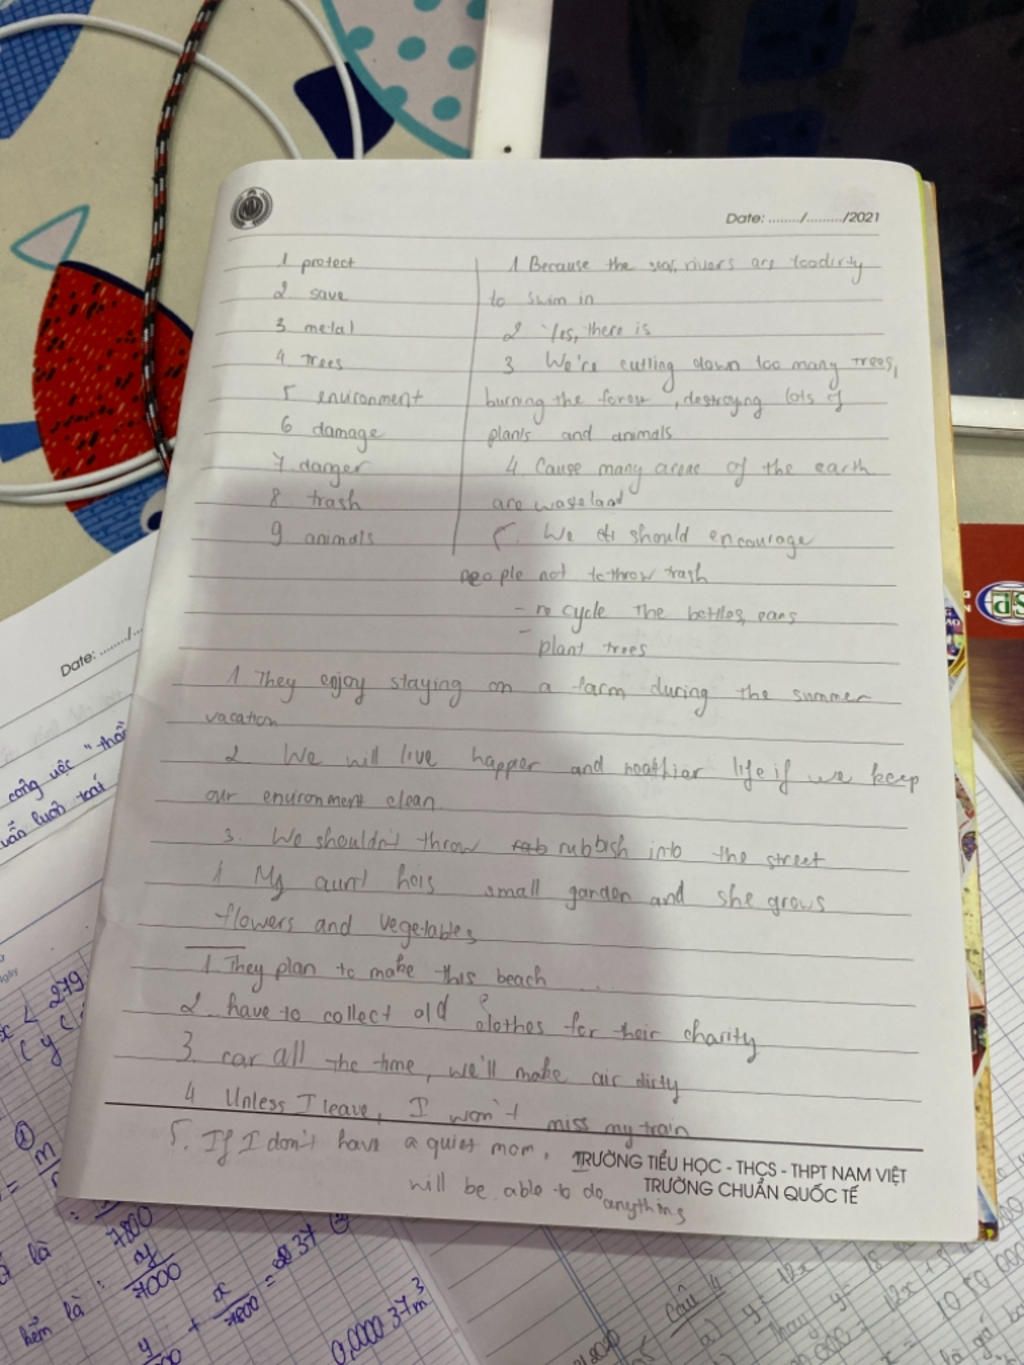 Date: ......../........./2021
1 protect
2. save
3 metal
4 Trees
5 environment
6 damage
7 danger
8 trash
9 animals
1 Because the sea, rivers are toodirty
to swim in
2 Yes, there is
3 We're cutting down too many trees,
burning the forest, destroying lots of
plants and animals
4. Cause many areas of the earth
are wasteland
5. We should encourage
people not to throw trash
- re cycle the bottles, cans
- plant trees
1 They enjoy staying on a farm during the summer
vacation
2 We will live happier and life if we keep
our environment clean.
3. We shouldn't throw rubbish into the street
1 My aunt has small garden and she grows
flowers and vegetables
1. They plan to make this beach ...
2. have to collect old clothes for their charity
3. car all the time, we'll make air dirty
4 Unless I leave, I won't miss my train
5. If I don't have a quiet mom, I
will be able to do anything
TRƯỜNG TIỂU HỌC - THCS - THPT NAM VIỆT
TRƯỜNG CHUẨN QUỐC TẾ
Date: ......../...
công ước "thổ
vẫn luôn
x < 279
7800
7000
0,000037m³
Câu 4: